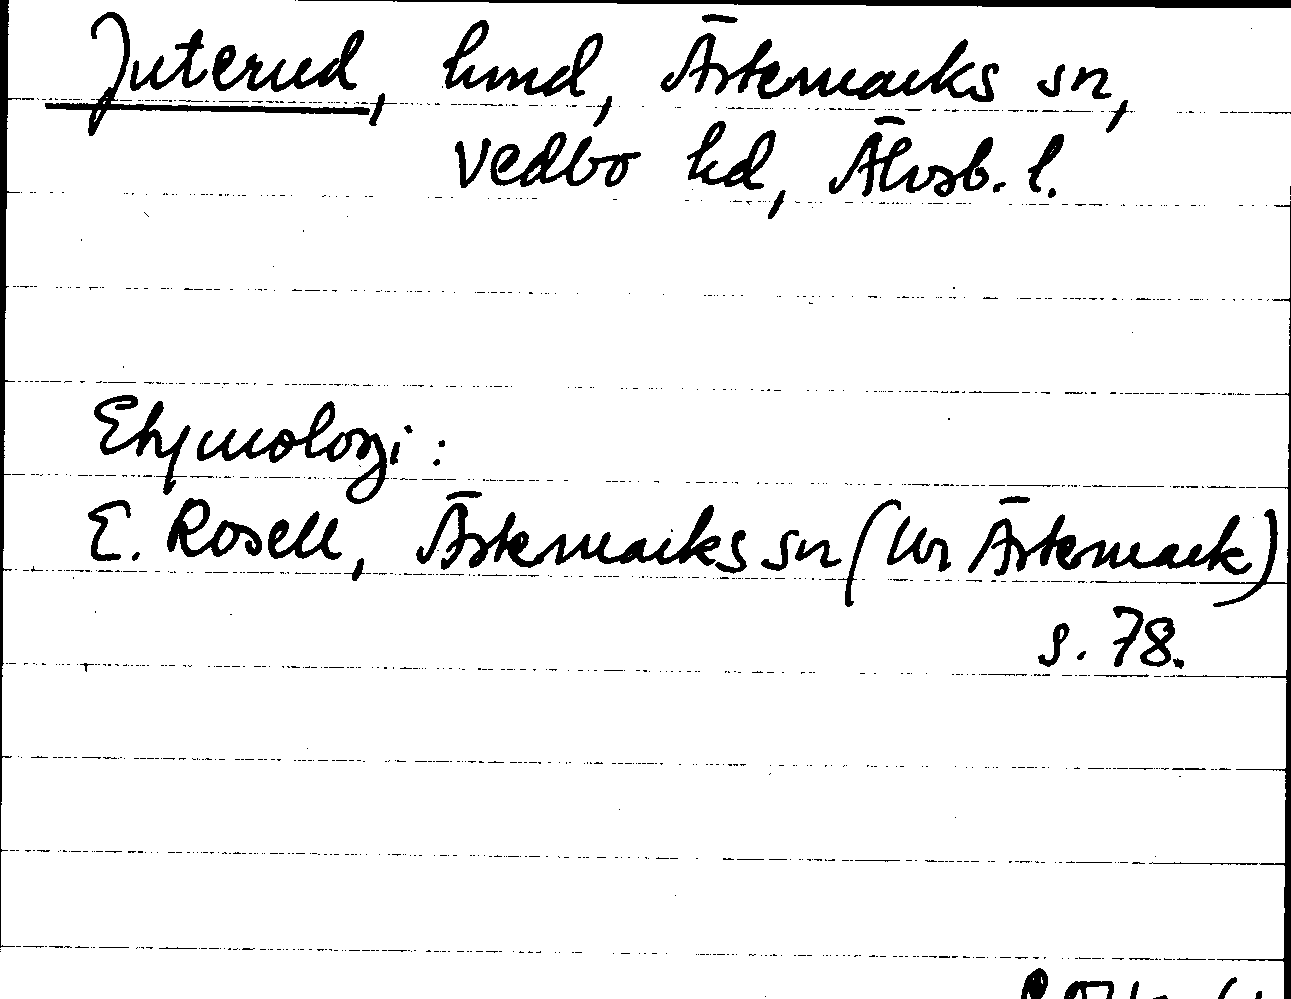 Juterud, hmd, Ärtemarks sn,
Vedbo hd, Älvsb. l.
Etymologi:
E. Rosell, Ärtemarks sn (ur Ärtemark)
s. 78.